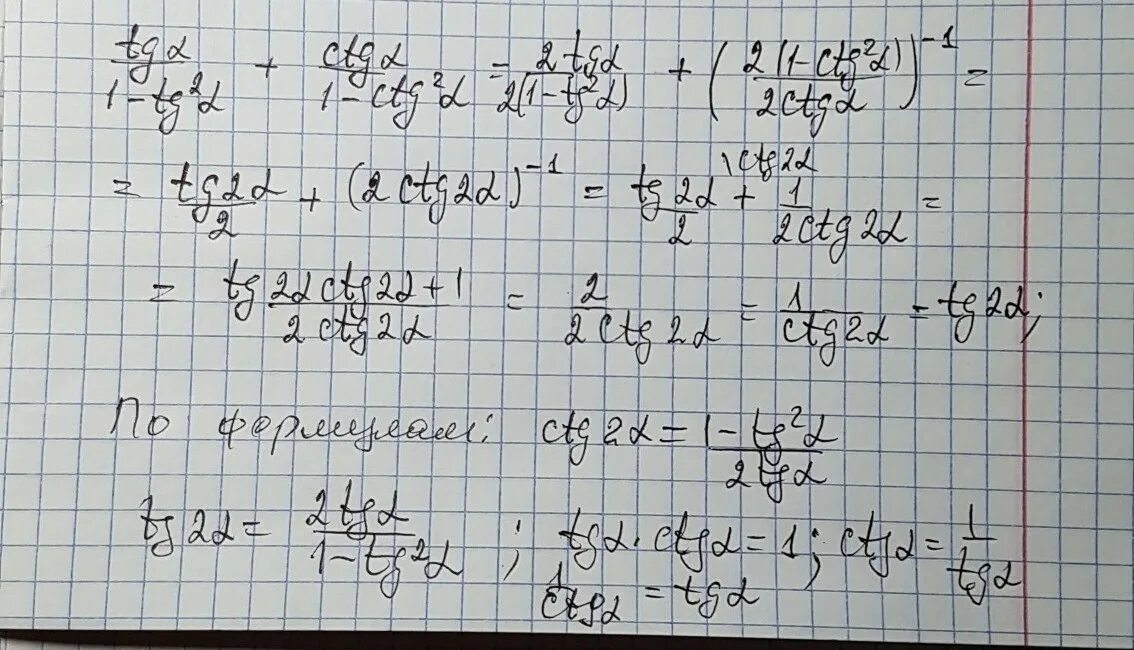 tgα/(1-tg²α) + ctgα/(1-ctg²α) = 2tgα/(2(1-tg²α)) + (2(1-ctg²α)/(2ctgα))⁻¹ =
= tg2α/2 + (2ctg2α)⁻¹ = tg2α/2 \ctg2α + 1/(2ctg2α) =
= (tg2αctg2α+1)/(2ctg2α) = 2/(2ctg2α) = 1/(ctg2α) = tg2α;
По формулам: ctg2α = (1-tg²α)/(2tgα)
tg2α = 2tgα/(1-tg²α) ; tgα·ctgα = 1; ctgα = 1/tgα
1/ctgα = tgα